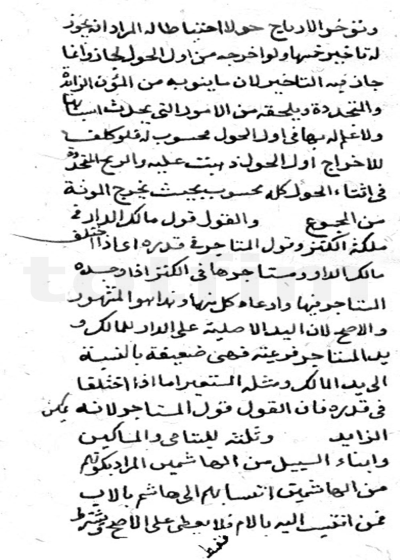 وتؤخر الارباح حولا احتياطا له المراد انه يجوز
له تاخير خمسها ولو اخرجه من اول الحول لجاز وانما
جاز فيه التاخير لان ما ينوبه من المؤن الزائدة
والمتجددة ويلحقه من الامور التي يحدث اسبابها
ولا علم له بها في اول الحول محسوب له فلو كلف
للاخراج اول الحول ذهبت عليه والربح المتجدد
في اثناء الحول كله محسوب بحيث يخرج المونة
من المجموع والقول قول مالك الدار في
ملكية الكنز وقول المستاجر في قدره اي اذا اختلف
مالك الدار ومستاجرها في الكنز اذا وجده
المستاجر فيها وادعاه كل منهما وهذا هو المشهور
والاصح لان اليد الاصلية على الدار للمالك و
يد المستاجر فرعية فهي ضعيفة بالنسبة
الى يد المالك ومثله المستعير اما اذا اختلفا
في قدره فان القول قول المستاجر لانه منكر
الزايد وثلثه لليتامى والمساكين
وابناء السبيل من الهاشميين المراد بكونهم
من الهاشميين انتسابهم الى هاشم بالاب
فمن انتسب اليه بالام فلا يعطى على الاصح ويشترط
فقط
totfim